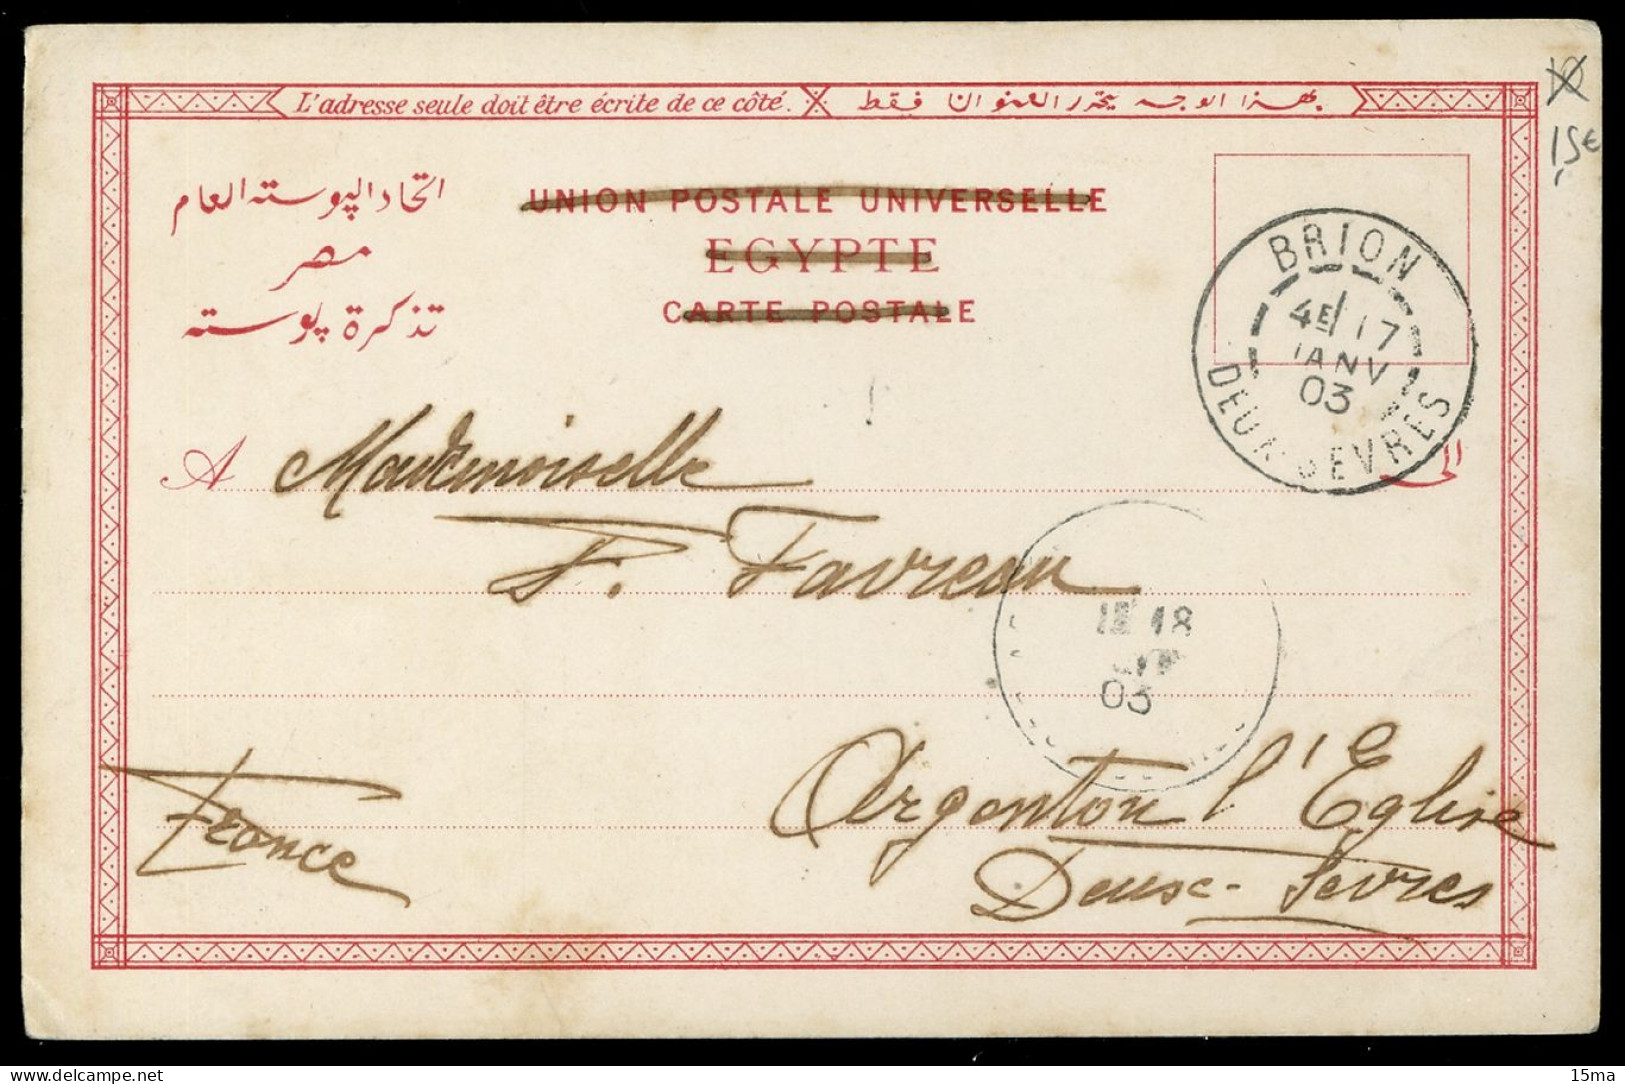 L'adresse seule doit être écrite de ce côté. بهذا الوجه يحرر العنوان فقط
10
15€
اتحاد البوسته العام
مصر
تذكرة بوسته
UNION POSTALE UNIVERSELLE
EGYPTE
CARTE POSTALE
BRION
4E 17
JANV
03
DEUX SEVRES
A Mademoiselle
F. Favreau
18
03
France
Argenton l'Eglise
Deux-Sevres
15ma